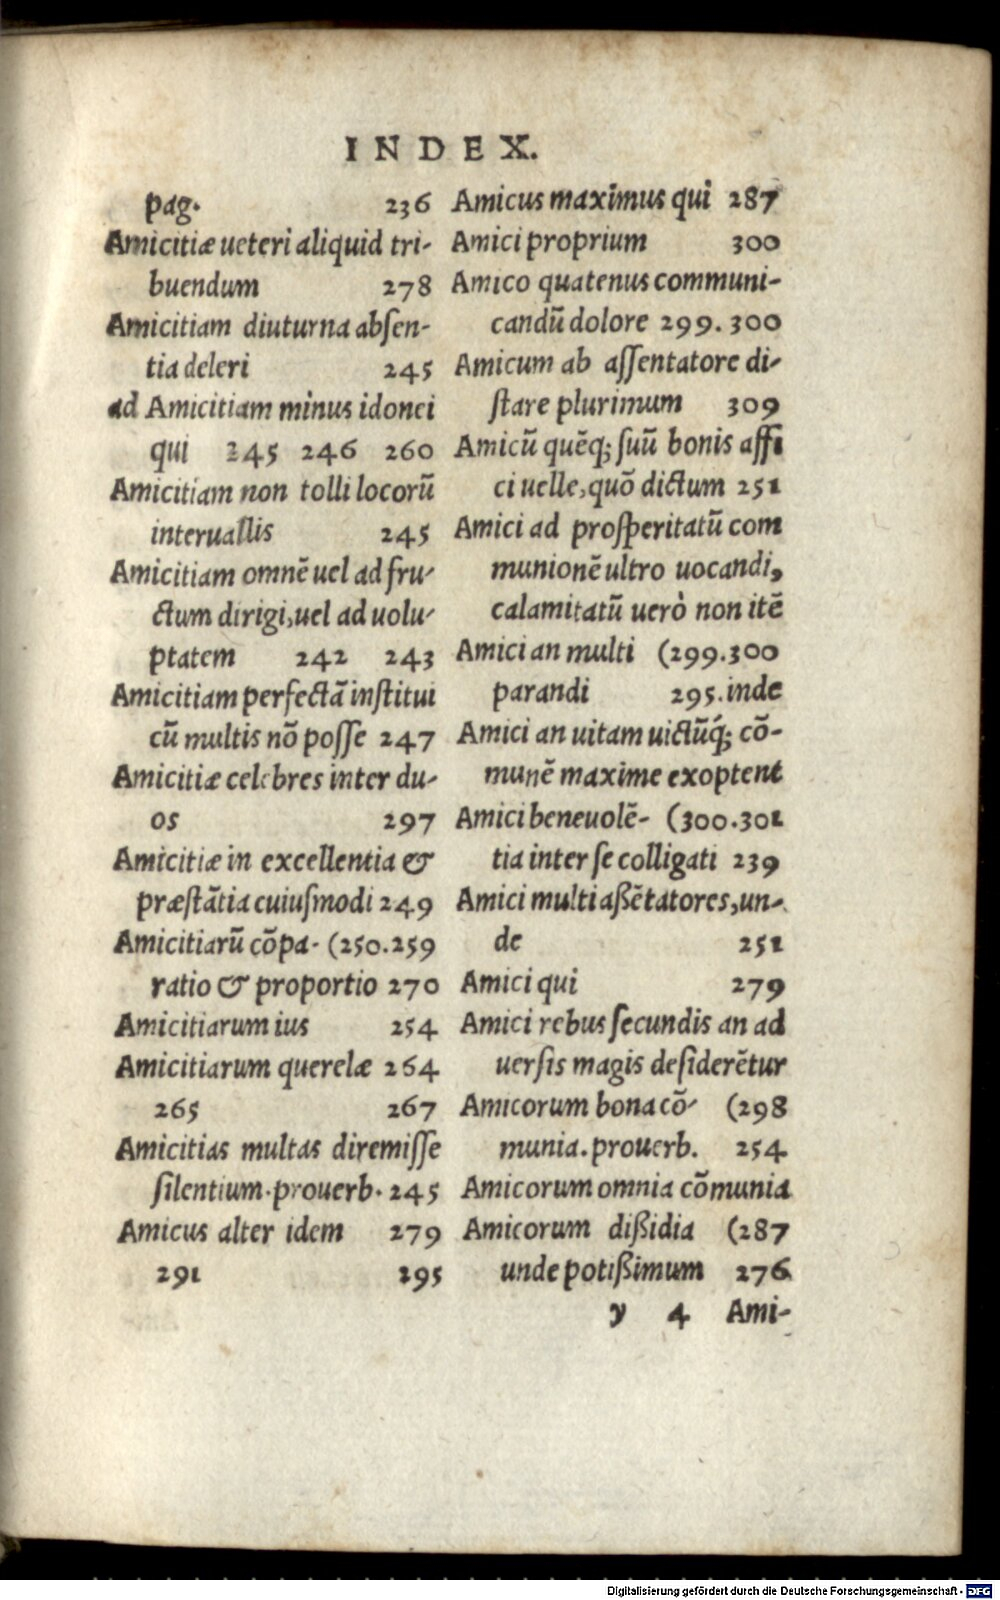 INDEX.
pag. 236
Amicitiæ ueteri aliquid tri-
buendum 278
Amicitiam diuturna absen-
tia deleri 245
ad Amicitiam minus idonei
qui 245 246 260
Amicitiam non tolli locorū
interuallis 245
Amicitiam omnē uel ad fru-
ctum dirigi, uel ad uolu-
ptatem 242 243
Amicitiam perfectā institui
cū multis nō posse 247
Amicitiæ celebres inter du-
os 297
Amicitiæ in excellentia &
præstātia cuiusmodi 249
Amicitiarū cōpa- (250.259
ratio & proportio 270
Amicitiarum ius 254
Amicitiarum querelæ 264
265 267
Amicitias multas diremisse
silentium. prouerb. 245
Amicus alter idem 279
291 295
Amicus maximus qui 287
Amici proprium 300
Amico quatenus communi-
candū dolore 299. 300
Amicum ab assentatore di-
stare plurimum 309
Amicū quēq; suū bonis affi
ci uelle, quō dictum 251
Amici ad prosperitatū com
munionē ultro uocandi,
calamitatū uerò non itē
Amici an multi (299.300
parandi 295. inde
Amici an uitam uictūq́; cō-
munē maxime exoptent
Amici beneuolē- (300.301
tia inter se colligati 239
Amici multi aßētatores, un-
de 251
Amici qui 279
Amici rebus secundis an ad
uersis magis desiderētur
Amicorum bona cō- (298
munia. prouerb. 254
Amicorum omnia cōmunia
Amicorum dißidia (287
unde potißimum 276
y 4 Ami-
Digitalisierung gefördert durch die Deutsche Forschungsgemeinschaft - DFG